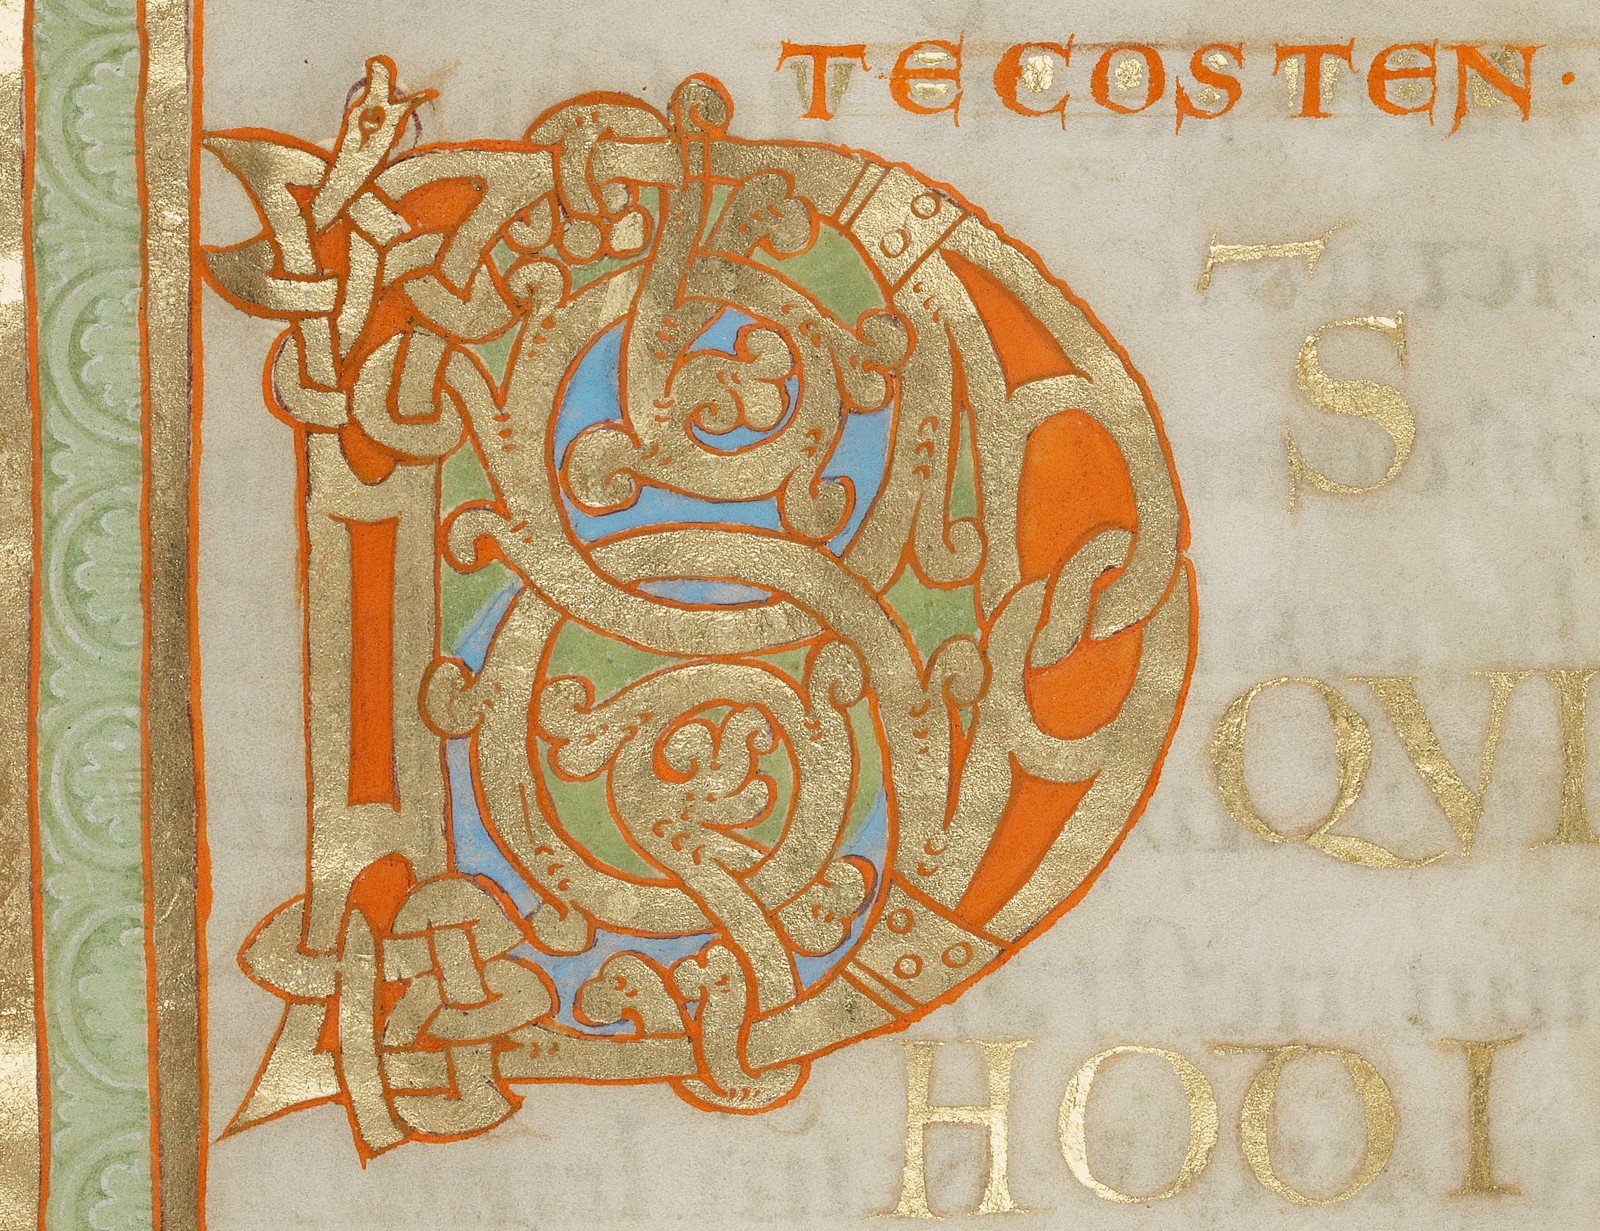 TECOSTEN·
DS̄
QVI
HODI